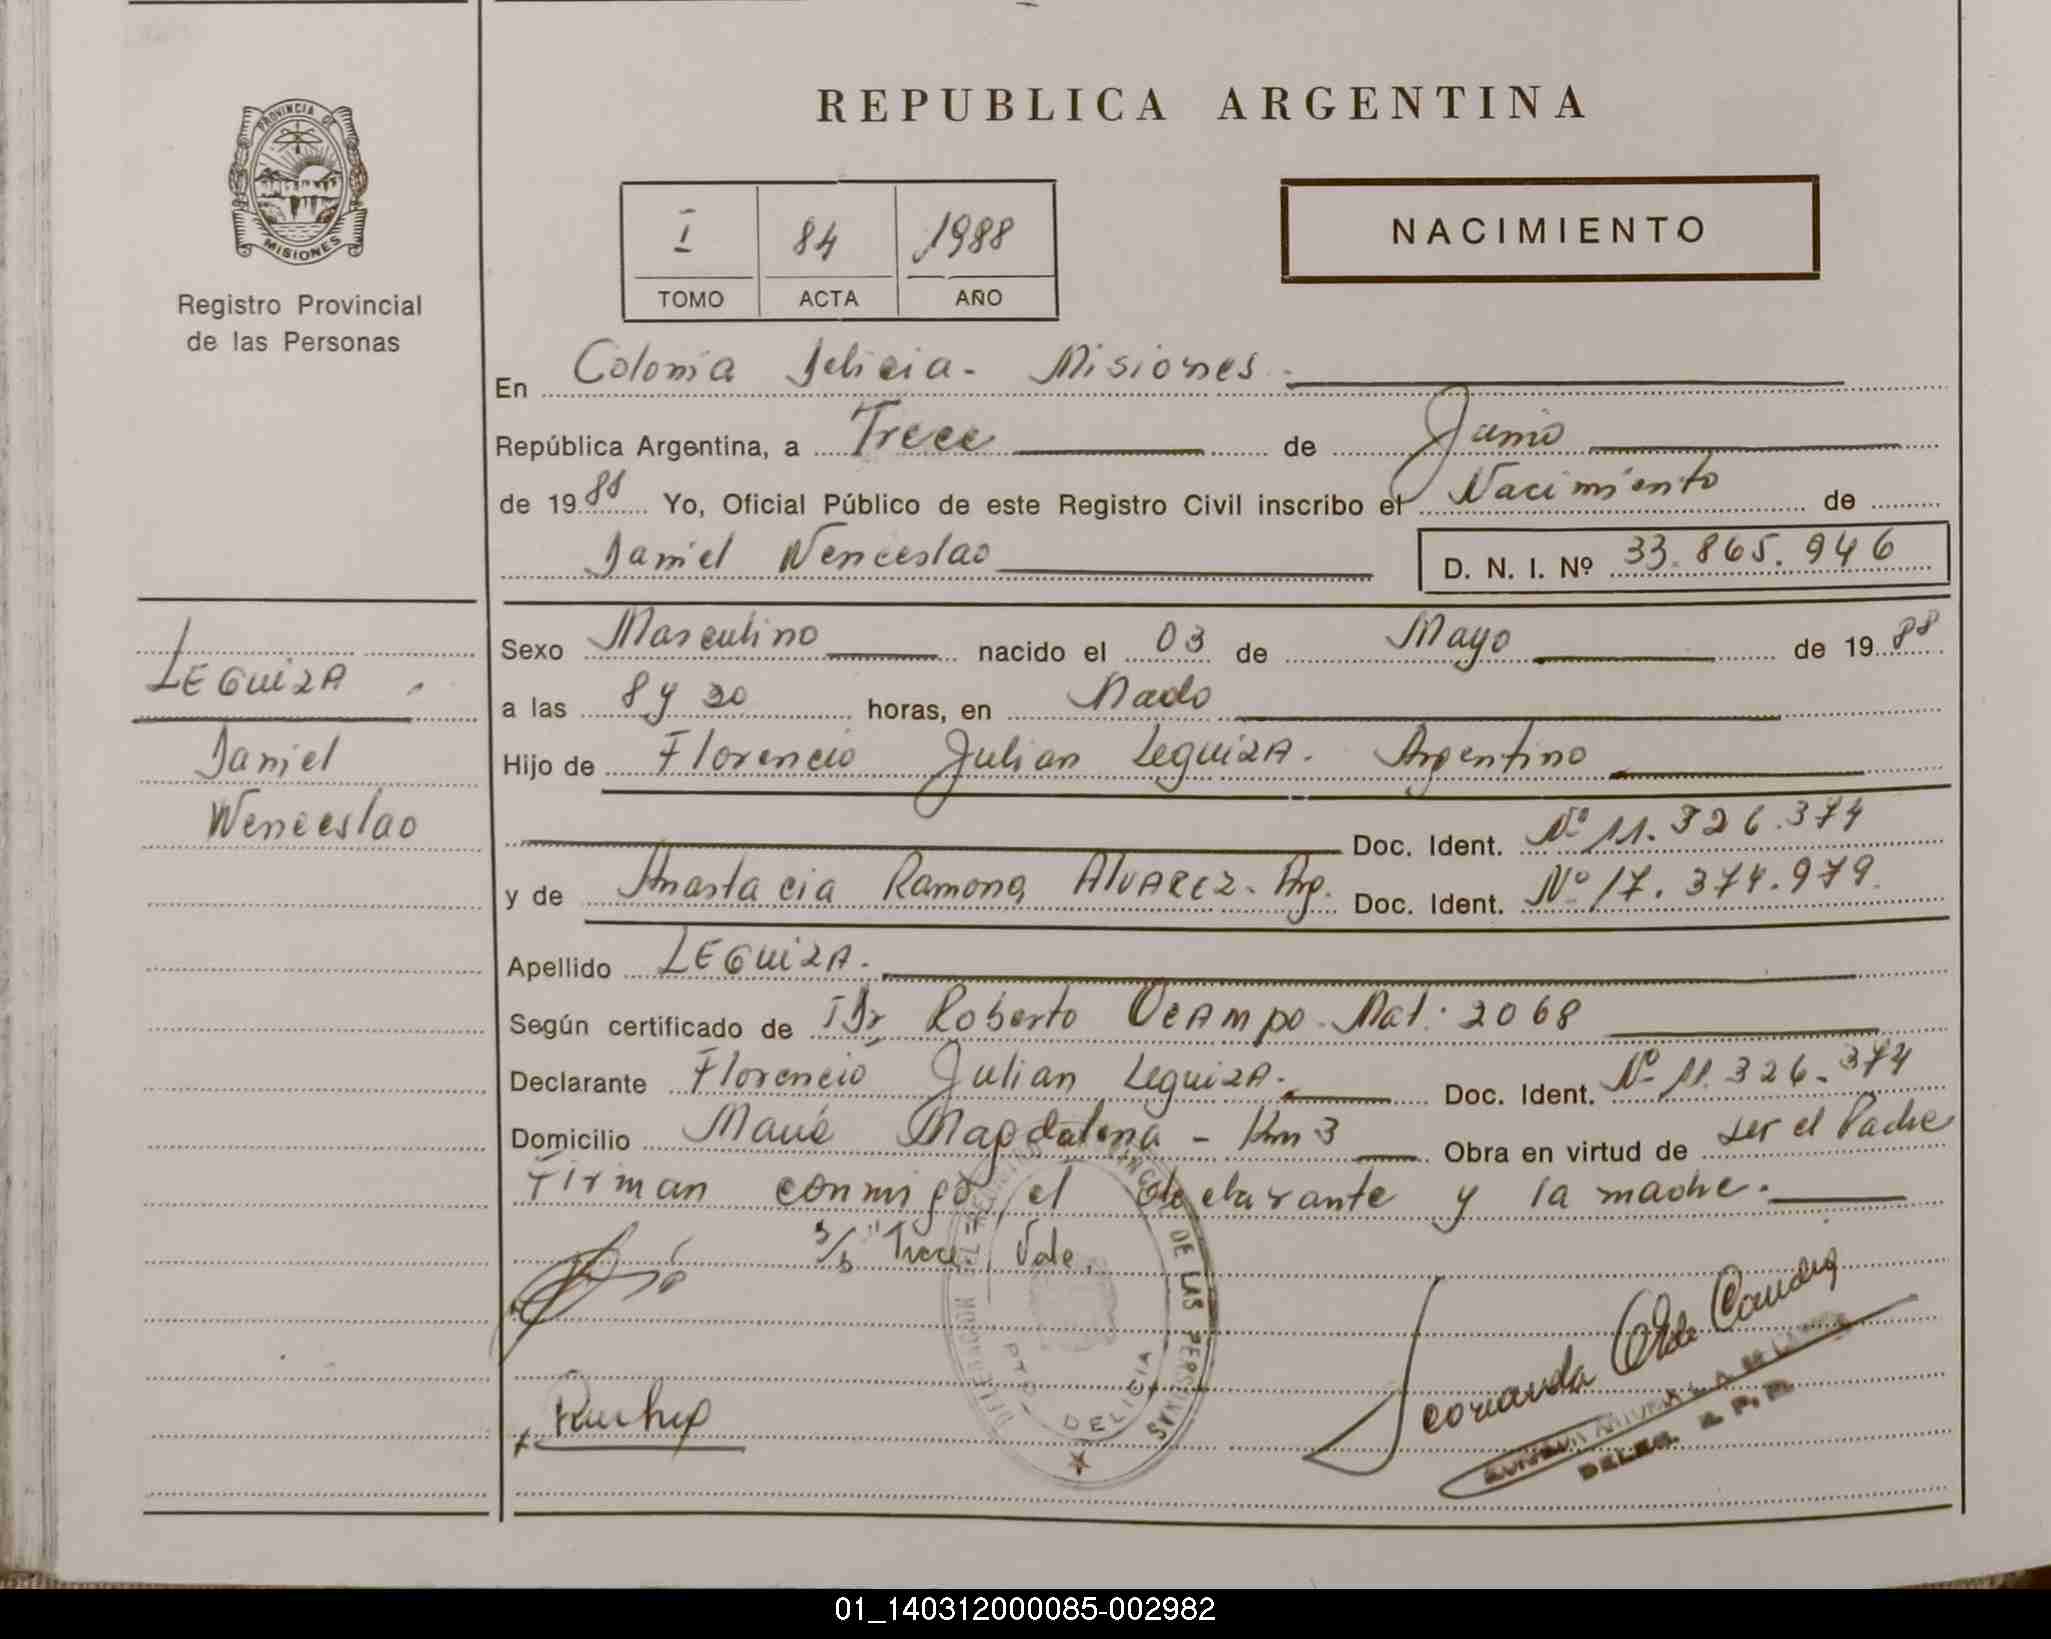 REPUBLICA ARGENTINA
PROVINCIA DE
MISIONES
Registro Provincial
de las Personas
I 84 1988
TOMO ACTA AÑO
NACIMIENTO
En Colonia Delicia - Misiones
República Argentina, a Trece de Junio
de 1988 Yo, Oficial Público de este Registro Civil inscribo el Nacimiento de
Daniel Wenceslao D. N. I. Nº 33.865.946
LEGUIZA
Daniel
Wenceslao
Sexo Masculino nacido el 03 de Mayo de 1988
a las 8 y 30 horas, en
Hijo de Florencio Julian LeguizA. Argentino
Doc. Ident. Nº 11.326.374
y de Anastacia Ramona ALVAREZ - Arg. Doc. Ident. Nº 17.374.979.
Apellido LEGUIZA.
Según certificado de Dr Roberto OCAMPO - Mat. 2068
Declarante Florencio Julian LeguizA. Doc. Ident. Nº 11.326.374
Domicilio Magdalena - Km 3 Obra en virtud de ser el Padre
Firman conmigo el declarante y la madre.
s/b "Trece" Vale.
DE LAS PERSONAS
PTO. DELICIA
DELEG. R. P. P.
01_140312000085-002982